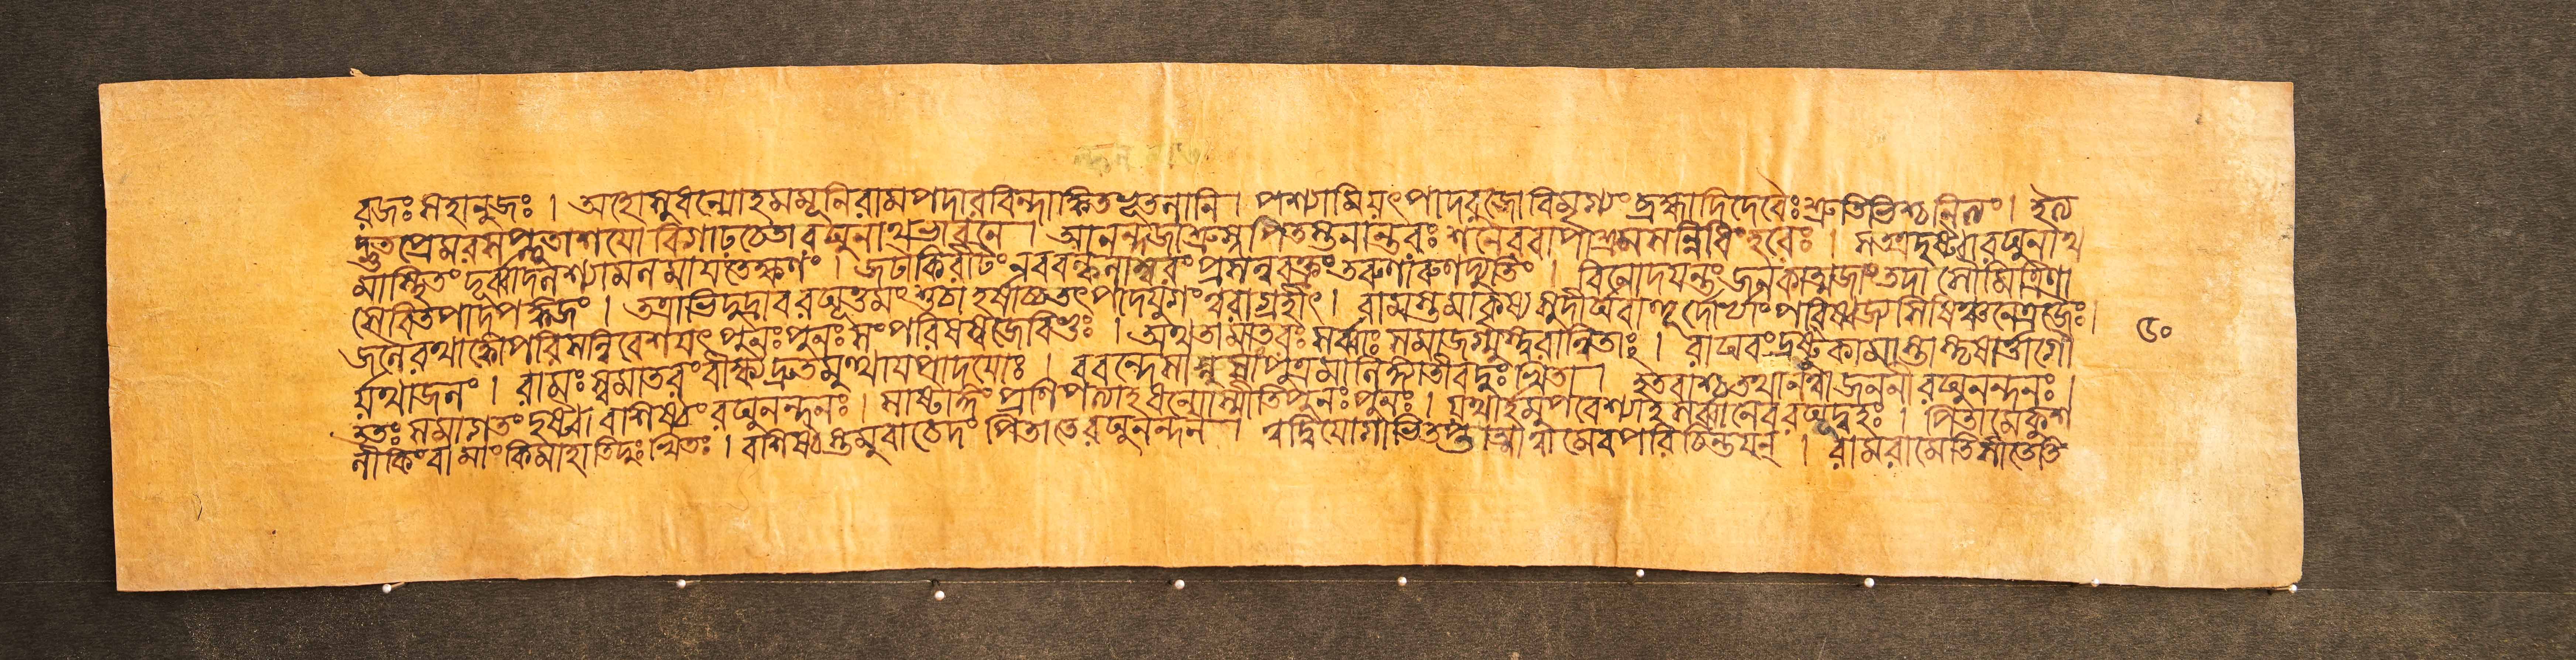 রজঃসহানুজঃ। অহোসুধন্যোহমমূনিরামপদারবিন্দাঙ্কিতভূতলানি। পশ্যামিযৎপাদরজোবিমৃগ্যংব্রহ্মাদিদেবৈঃশ্রুতিভিশ্চনিত্যং। ইত্য
দ্ভুতপ্রেমরসপ্লুতাশয়ো বিগাঢ়চেতারঘুনাথভাবনে। আনন্দজাশ্রুস্নপিতস্তনান্তরঃ শনৈরবাপাশ্রমসন্নিধিংহরেঃ। সতত্রদৃষ্ট্বারঘুনাথ
মাস্থিতংদূর্ব্বাদলশ্যামলমায়তেক্ষণং। জটাকিরীটংনববল্কলাম্বরংপ্রসন্নবক্ত্রংতরুণারুণদ্যুতিং। বিলোকয়ন্তংজনকাত্মজাংতদা সৌমিত্রিণা
সেবিতপাদপঙ্কজং। তত্রাভিদুদ্রাবরঘূত্তমংশুচা হর্ষাচ্চতৎপাদযুগংত্বরাগ্রহীৎ। রামস্তমাকৃষ্যসুদীর্ঘবাহুর্দোর্ভ্যাংপরিষ্বজ্যসিষিঞ্চনেত্রজৈঃ।
জলৈরথাঙ্কোপরিসন্নিবেশয়ৎপুনঃপুনঃসংপরিষষ্বজেবিভুঃ। অথতামাতরঃসর্ব্বাঃসমাজগ্মুস্ত্বরান্বিতাঃ। রাঘবংদ্রষ্টুকামাস্তাস্তৃষার্ত্তাগৌ ৫০
র্যথাজলং। রামঃস্বমাতরংবীক্ষ্যদ্রুতমুত্থায়পাদয়োঃ। ববন্দেসাশ্রুসাপুত্রমালিঙ্গ্যাতীবদুঃখিতা। ইতরাশ্চতথানত্বাজননীরঘুনন্দনঃ।
ততঃসমাগতংদৃষ্ট্বাবাশিষ্ঠংরঘুনন্দনঃ। সাষ্টাঙ্গংপ্রণিপত্যাহধন্যোস্মীতিপুনঃপুনঃ। যথার্হমুপবেশ্যাহসর্ব্বানেবরঘূদ্বহঃ। পিতামেকুশ
লীকিংবামাংকিমাহাতিদুঃখিতঃ। বশিষ্ঠস্তমুবাচেদংপিতাতেরঘুনন্দন। ত্বদ্বিয়োগাভিতপ্তাত্মাত্বামেবপরিচিন্তয়ন্। রামরামেতিসীতেতি